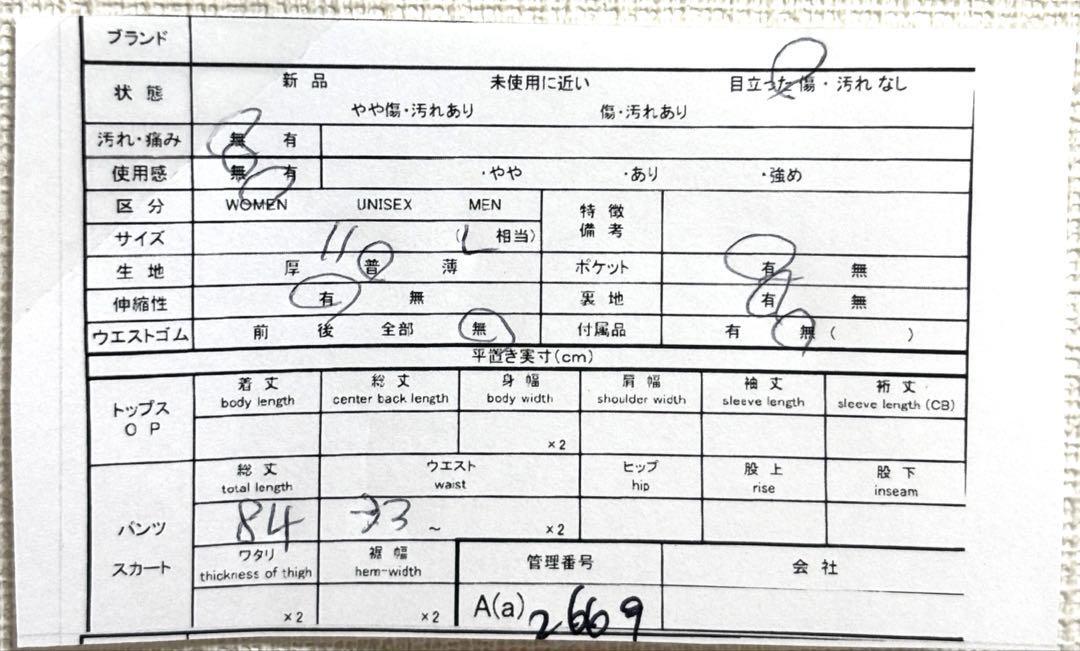 ブランド
状態 新品 未使用に近い 目立った傷・汚れなし
やや傷・汚れあり 傷・汚れあり
汚れ・痛み 無 有
使用感 無 有 ・やや ・あり ・強め
区分 WOMEN UNISEX MEN 特徴備考
サイズ 11 (L 相当)
生地 厚 普 薄 ポケット 有 無
伸縮性 有 無 裏地 有 無
ウエストゴム 前 後 全部 無 付属品 有 無 ( )
平置き実寸(cm)
トップス OP 着丈 総丈 身幅 肩幅 袖丈 裄丈
body length center back length body width shoulder width sleeve length sleeve length (CB)
×2
パンツ スカート 総丈 ウエスト ヒップ 股上 股下
total length waist hip rise inseam
84 33 ~ ×2
ワタリ 裾幅 管理番号 会社
thickness of thigh hem-width
×2 ×2 A(a) 2669